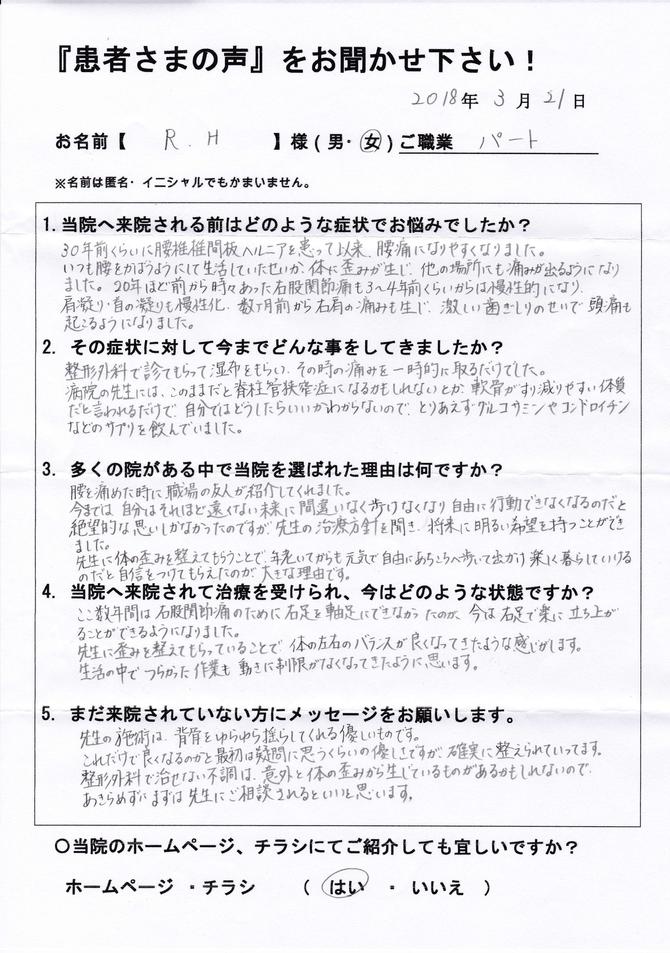 『患者さまの声』をお聞かせ下さい！
2018年 3月21日
お名前【 R. H 】様（男・女）ご職業 パート
※名前は匿名・イニシャルでもかまいません。
1. 当院へ来院される前はどのような症状でお悩みでしたか？
30年前くらいに腰椎椎間板ヘルニアを患って以来、腰痛になりやすくなりました。
いつも腰をかばうようにして生活していたせいか、体に歪みが生じ、他の場所にも痛みが出るようになり
ました。20年ほど前から時々あった右股関節痛も3〜4年前くらいからは慢性的になり、
肩凝り・首の凝りも慢性化、数ヶ月前から右肩の痛みも生じ、激しい歯ぎしりのせいで頭痛も
起こるようになりました。
2. その症状に対して今までどんな事をしてきましたか？
整形外科で診てもらって湿布をもらい、その時の痛みを一時的に取るだけでした。
病院の先生には、このままだと脊柱管狭窄症になるかもしれないとか、軟骨がすり減りやすい体質
だと言われるだけで、自分ではどうしたらいいかわからないので、とりあえずグルコサミンやコンドロイチン
などのサプリを飲んでいました。
3. 多くの院がある中で当院を選ばれた理由は何ですか？
腰を痛めた時に職場の友人が紹介してくれました。
今までは、自分はそれほど遠くない未来に間違いなく歩けなくなり自由に行動できなくなるのだと
絶望的な思いしかなかったのですが、先生の治療方針を聞き、将来に明るい希望を持つことができ
ました。
先生に体の歪みを整えてもらうことで、年老いてからも元気で自由にあちこちへ歩いて出かけ楽しく暮らしていける
のだと自信をつけてもらえたのが、大きな理由です。
4. 当院へ来院されて治療を受けられ、今はどのような状態ですか？
ここ数年間は右股関節痛のために右足を軸足にできなかったのが、今は右足で楽に立ち上が
ることができるようになりました。
先生に歪みを整えてもらっていることで、体の左右のバランスが良くなってきたような感じがします。
生活の中でつらかった作業も動きに制限がなくなってきたように思います。
5. まだ来院されていない方にメッセージをお願いします。
先生の施術は、背骨をゆらゆら揺らしてくれる優しいものです。
これだけで良くなるのかと最初は疑問に思うくらいの優しさですが、確実に整えられていってます。
整形外科で治せない不調は、意外と体の歪みから生じているものがあるかもしれないので、
あきらめずにまずは先生にご相談されるといいと思います。
〇当院のホームページ、チラシにてご紹介しても宜しいですか？
ホームページ ・チラシ （ はい ・ いいえ ）